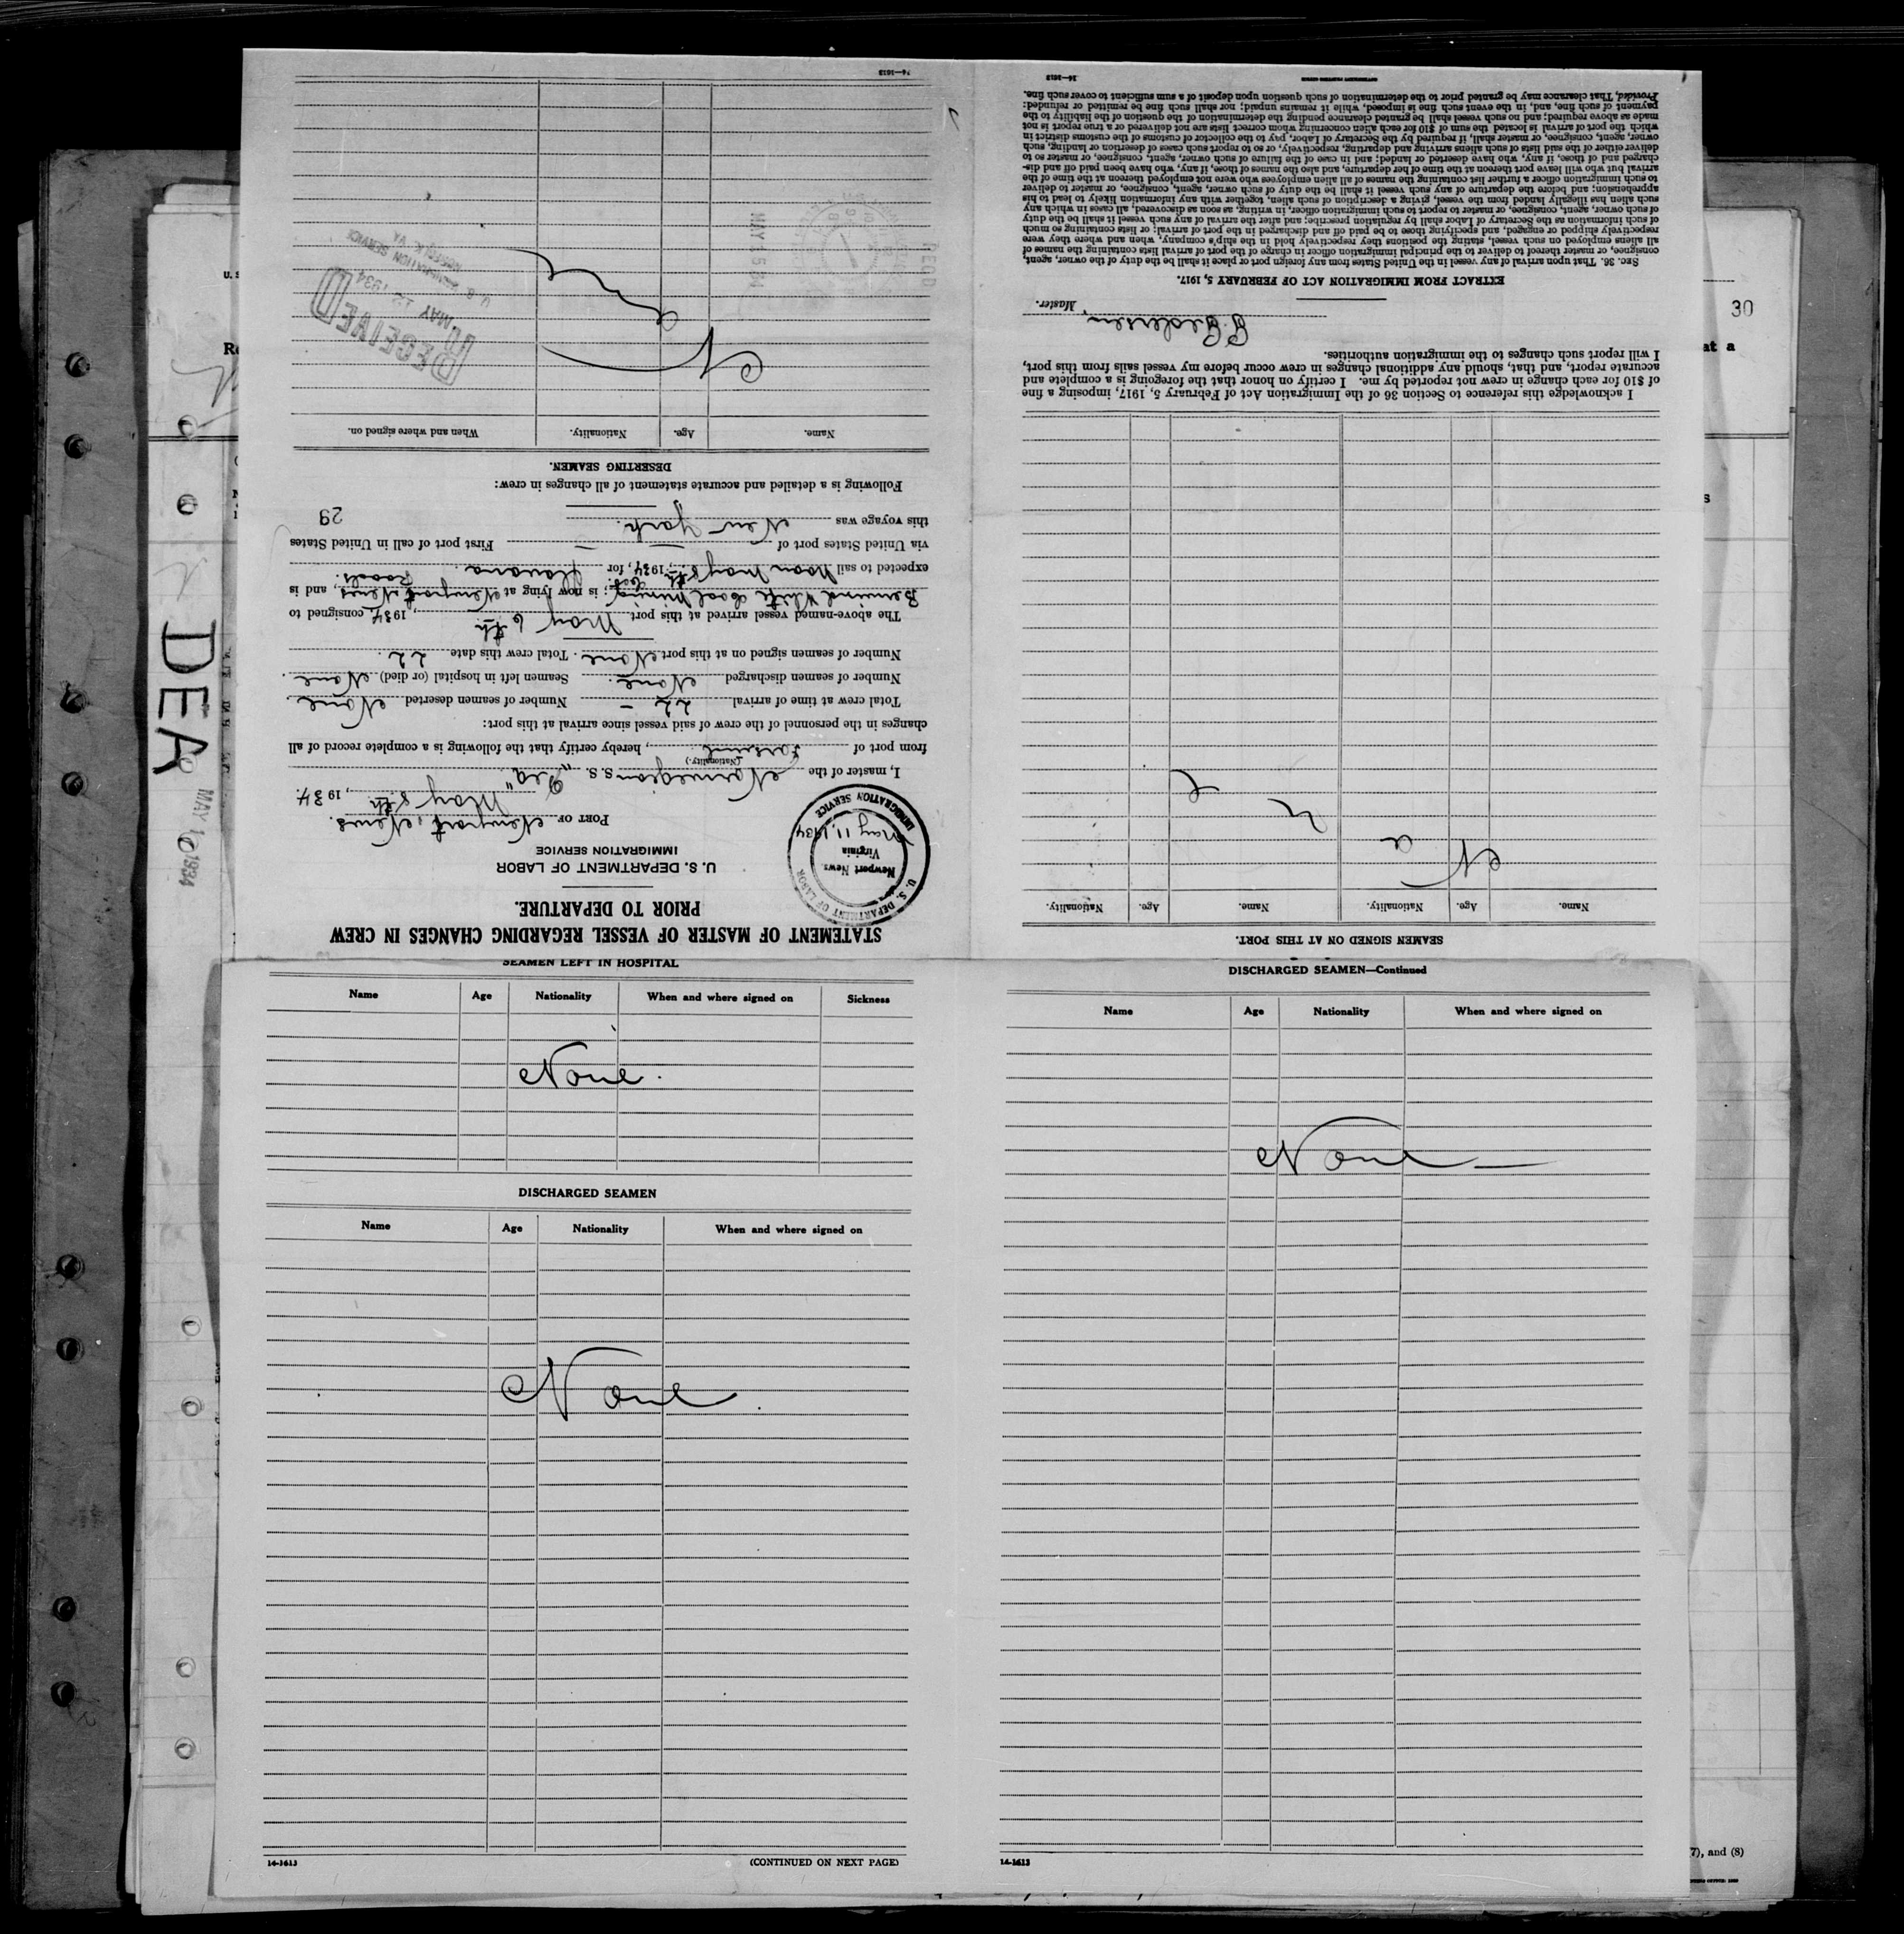 STATEMENT OF MASTER OF VESSEL REGARDING CHANGES IN CREW
PRIOR TO DEPARTURE.
U. S. DEPARTMENT OF LABOR
IMMIGRATION SERVICE
U. S. DEPARTMENT OF LABOR
Newport News
Virginia
May 11, 1934
IMMIGRATION SERVICE
PORT OF Newport News.
May 8th, 1934.
I, master of the Norwegian s. s. "Dea"
(Nationality.)
from port of , hereby certify that the following is a complete record of all
changes in the personnel of the crew of said vessel since arrival at this port:
Total crew at time of arrival 22 – Number of seamen deserted None
Number of seamen discharged None. Seamen left in hospital (or died) None.
Number of seamen signed on at this port None. Total crew this date 22.
The above-named vessel arrived at this port May 6th, 1934, consigned to
Berwind White Coal Mining Co.; is now lying at Newport News Roads., and is
expected to sail Noon May 8th, 1934, for Havana.
via United States port of — First port of call in United States —
this voyage was New York.
29
Following is a detailed and accurate statement of all changes in crew:
DESERTING SEAMEN.
Name. Age. Nationality. When and where signed on.
None
RECEIVED
MAY 12 1934
U. S. IMMIGRATION SERVICE
NORFOLK, VA
REC'D
MAY 5 34
14—1613
SEAMEN SIGNED ON AT THIS PORT.
Name. Age. Nationality. Name. Age. Nationality.
None
I acknowledge this reference to Section 36 of the Immigration Act of February 5, 1917, imposing a fine
of $10 for each change in crew not reported by me. I certify on honor that the foregoing is a complete and
accurate report, and that, should any additional changes in crew occur before my vessel sails from this port,
I will report such changes to the immigration authorities.
Pedersen
Master.
EXTRACT FROM IMMIGRATION ACT OF FEBRUARY 5, 1917.
SEC. 36. That upon arrival of any vessel in the United States from any foreign port or place it shall be the duty of the owner, agent,
consignee, or master thereof to deliver to the principal immigration officer in charge of the port of arrival lists containing the names of
all aliens employed on such vessel, stating the positions they respectively hold in the ship's company, when and where they were
respectively shipped or engaged, and specifying those to be paid off and discharged in the port of arrival; or lists containing so much
of such information as the Secretary of Labor shall by regulation prescribe; and after the arrival of any such vessel it shall be the duty
of such owner, agent, consignee, or master to report to such immigration officer, in writing, as soon as discovered, all cases in which any
such alien has illegally landed from the vessel, giving a description of such alien, together with any information likely to lead to his
apprehension; and before the departure of any such vessel it shall be the duty of such owner, agent, consignee, or master to deliver
to such immigration officer a further list containing the names of all alien employees who were not employed thereon at the time of the
arrival but who will leave port thereon at the time of her departure, and also the names of those, if any, who have been paid off and dis-
charged and of those, if any, who have deserted or landed; and in case of the failure of such owner, agent, consignee, or master so to
deliver either of the said lists of such aliens arriving and departing, respectively, or so to report such cases of desertion or landing, such
owner, agent, consignee, or master shall, if required by the Secretary of Labor, pay to the collector of customs of the customs district in
which the port of arrival is located the sum of $10 for each alien concerning whom correct lists are not delivered or a true report is not
made as above required; and no such vessel shall be granted clearance pending the determination of the question of the liability to the
payment of such fine, and, in the event such fine is imposed, while it remains unpaid; nor shall such fine be remitted or refunded:
Provided, That clearance may be granted prior to the determination of such question upon deposit of a sum sufficient to cover such fine.
14—1613
SEAMEN LEFT IN HOSPITAL
Name Age Nationality When and where signed on Sickness
None.
DISCHARGED SEAMEN
Name Age Nationality When and where signed on
None.
14-1613 (CONTINUED ON NEXT PAGE)
DISCHARGED SEAMEN—Continued
Name Age Nationality When and where signed on
None —
14-1613
DEA
MAY 10 1934
30
at a
7), and (8)